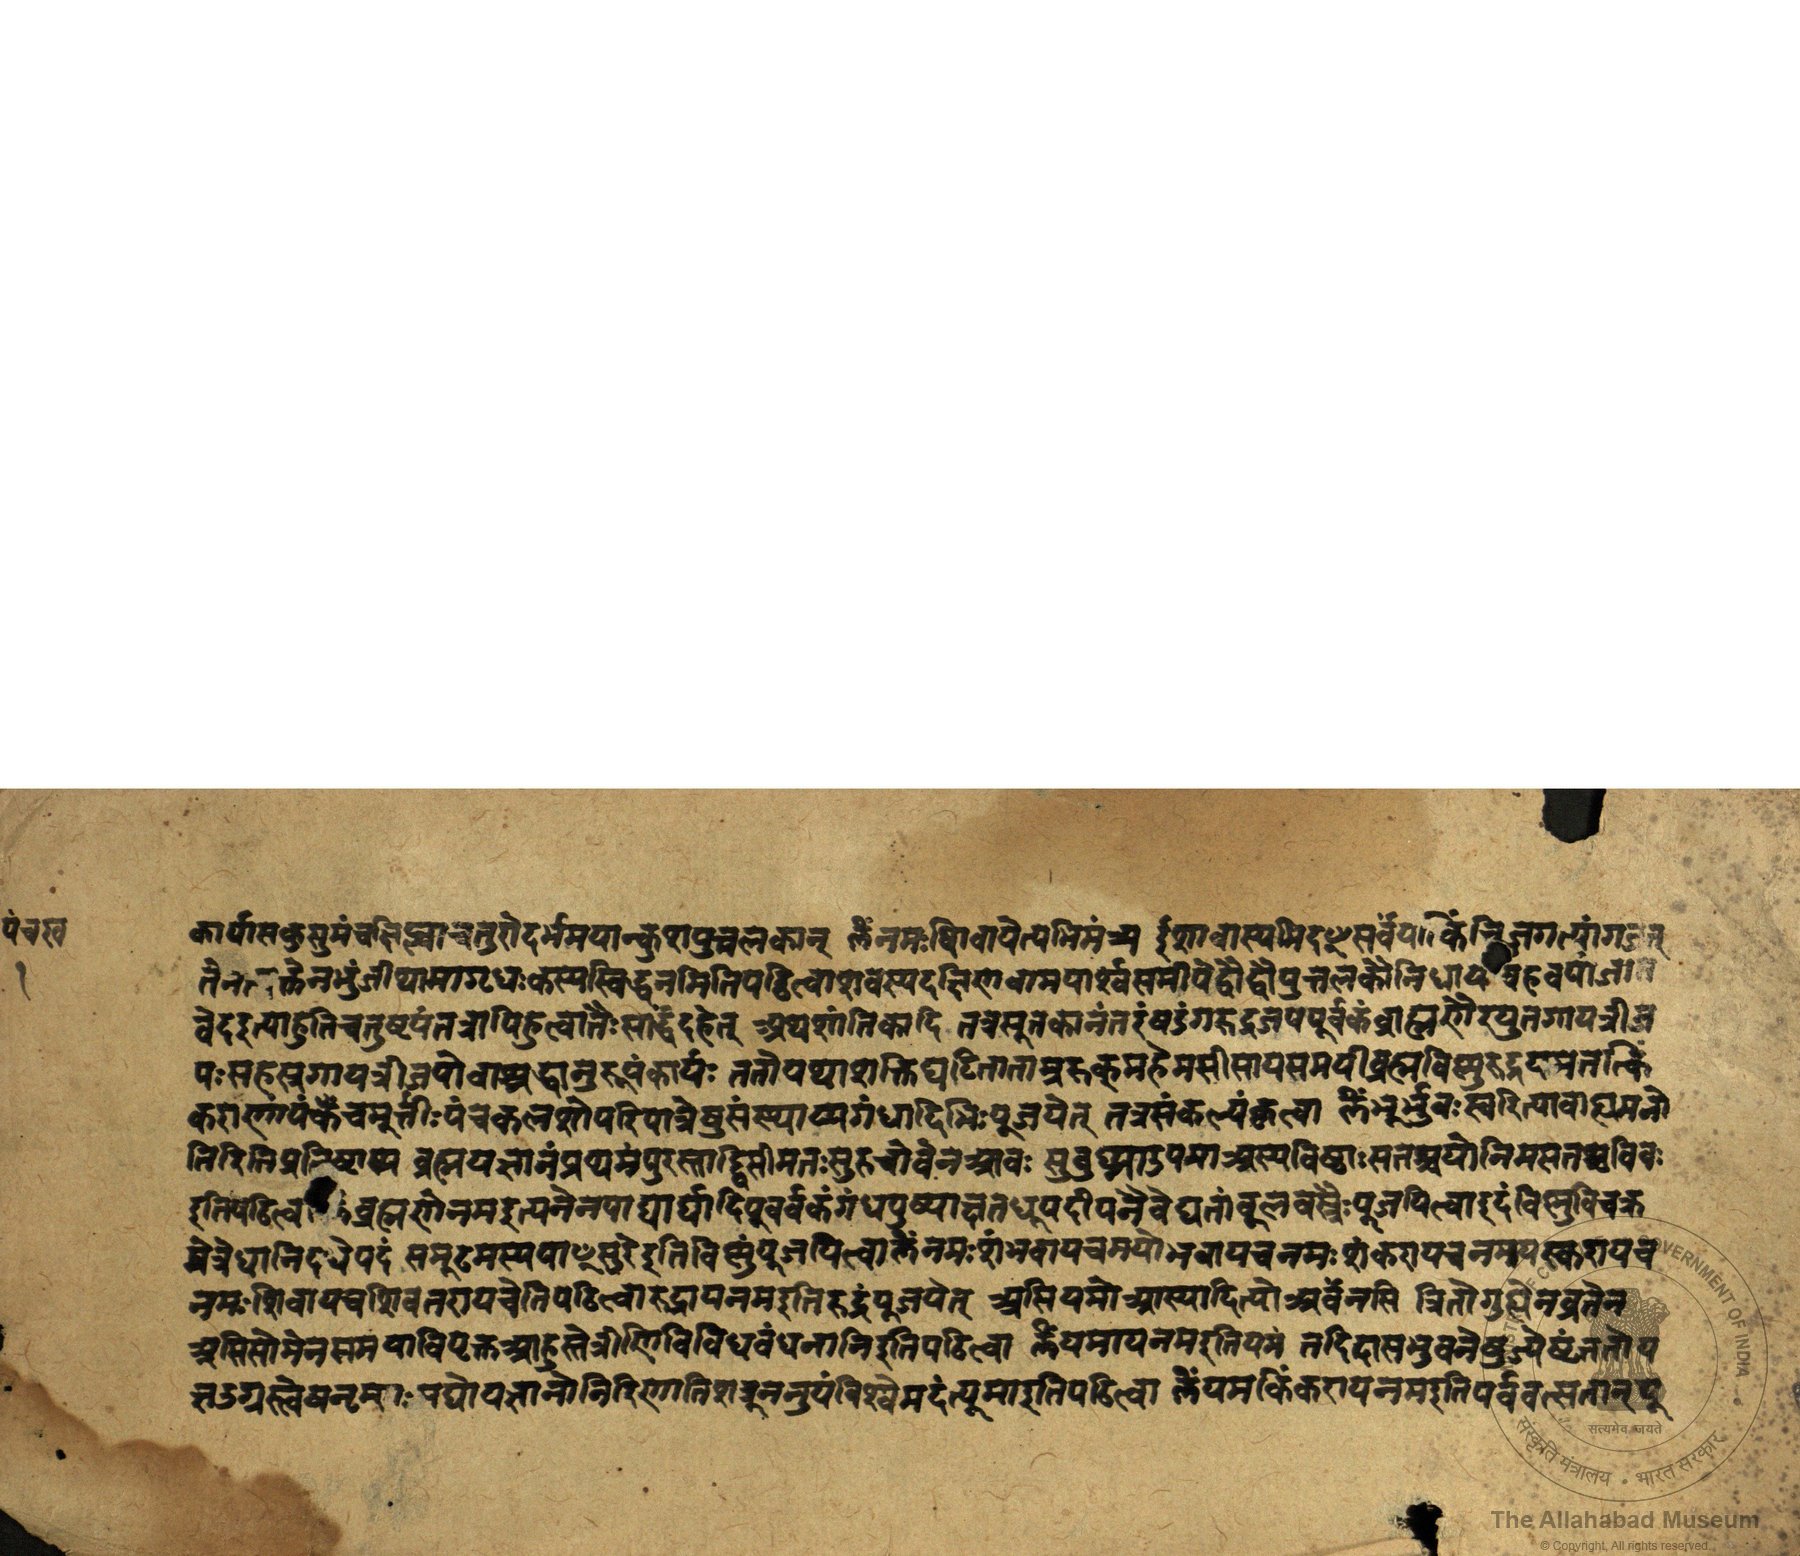 पंचरव
१
कार्पासकुसुमंचक्षिप्त्वाचतुरोदर्भमयान्कुशपुत्तलकान् ॐनमःशिवायेत्यभिमंत्र्य ईशावास्यमिदꣳसर्वंयत्किंचिज्जगत्यांजगत्
तेनत्यक्तेनभुंजीथामागृधःकस्यस्विद्धनमितिपठित्वाशवस्यदक्षिणवामपार्श्वसमीपेद्वौद्वौपुत्तलकौनिधाय
वेदइत्याहुतिचतुष्टयंतत्रापिहुत्वातैःसार्द्धंदहेत् अथशांतिकादि तत्रसूतकानंतरंषडंगरुद्रजपपूर्वकंब्राह्मणैरयुतगायत्रीज
पःसहस्रगायत्रीजपोवाश्रद्धानुरूपंकार्यः ततोयथाशक्तिघटिताताम्ररुक्महेमसीसायसमयीब्रह्मविष्णुरुद्र
कराणांपंचमूर्त्तीःपंचकलशोपरिपात्रेषुसंस्थाप्यगंधादिभिःपूजयेत् तत्रसंकल्पंकृत्वा ॐभूर्भुवःस्वरित्यावाह्यमनो
तिरितिप्रतिष्ठाप्य ब्रह्मयज्ञानंप्रथमंपुरस्ताद्विसीमतःसुरुचोवेनआवः सबुध्न्याउपमाअस्यविष्ठाःसतश्चयोनिमसतश्चविवः
इतिपठित्वा ॐब्रह्मणेनमइत्यनेनपाद्यार्घ्यादिपूर्वकंगंधपुष्पाक्षतधूपदीपनैवेद्यतांबूलवस्त्रैःपूजयित्वाइदंविष्णुविचक्र
मेत्रेधानिदधेपदं समूढमस्यपाꣳसुरेइतिविष्णुंपूजयित्वाॐनमःशंभवायचमयोभवायचनमःशंकरायचनममयस्कराय‍च
नमःशिवायचशिवतरायचेतिपठित्वारुद्रायनमइतिरुद्रंपूजयेत् असियमोअस्यादित्योअर्वन्नसि त्रितोगुह्येनव्रतेन
असिसोमेनसमयाविपृक्तआहुस्तेत्रीणिविविधबंधनानिइतिपठित्वा ॐयमायनमइतियमं तदिदासभुवनेषुज्येष्ठंजतोय
ज्ञउग्रस्त्वेषनृम्णः सद्योयज्ञानोनिरिणातिशत्रूननुयंविश्वेमदंत्यूमाइतिपठित्वा ॐयमकिंकरायनमइतिपूर्ववत्
सत्यमेव जयते
संस्कृति मंत्रालय • भारत सरकार
GOVERNMENT OF INDIA
The Allahabad Museum
© Copyright, All rights reserved.